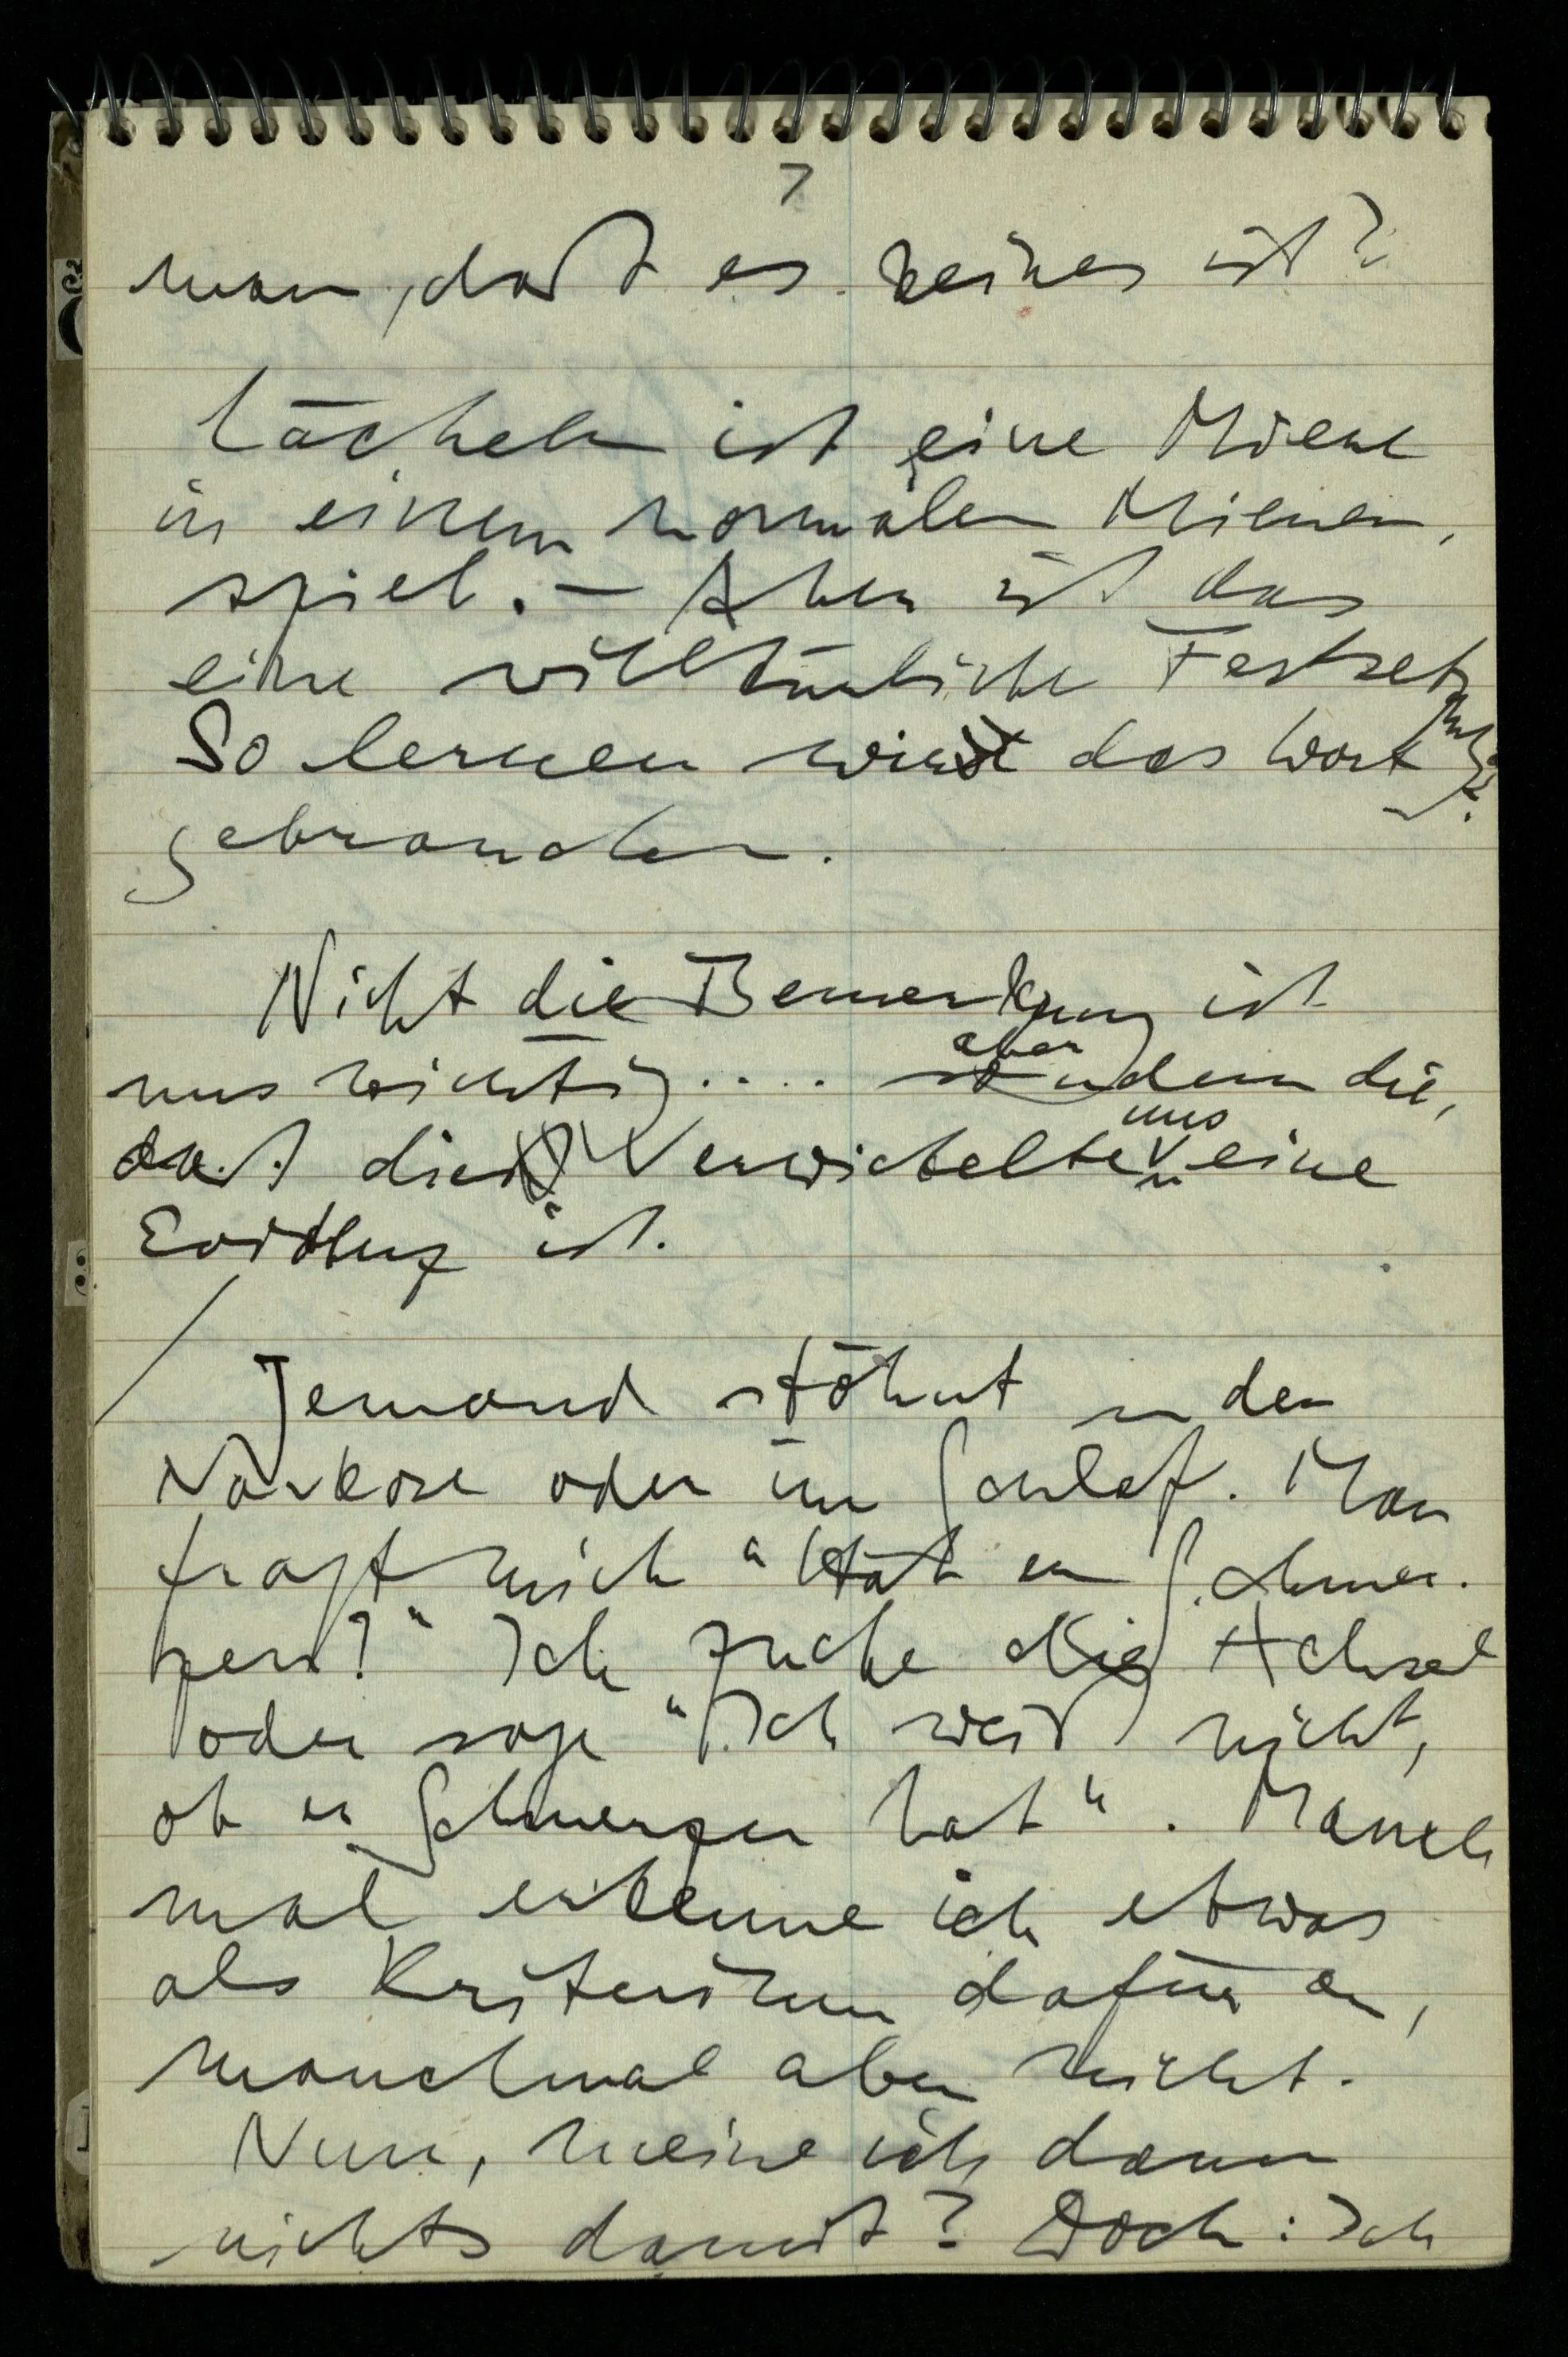 7
man, daß es keines ist?
Lächeln ist eine Miene
in einem normalen Mienen-
spiel. – Aber ist das
eine willkürliche Festsetzung?
So lernen wir das Wort
gebrauchen.
Nicht die Bemerkung ist
uns wichtig .... aber
sondern die,
uns
daß die Verwickelten eine
ist.
Jemand stöhnt in der
Narkose oder im Schlaf. Man
fragt mich "Hat er Schmer-
zen?" Ich zucke die Achsel
oder sage "Ich weiß nicht,
ob er Schmerzen hat". Manch
mal erkenne ich etwas
als Kriterium dafür an,
manchmal aber nicht.
Nun, meine ich dann
nichts damit? Doch: Ich